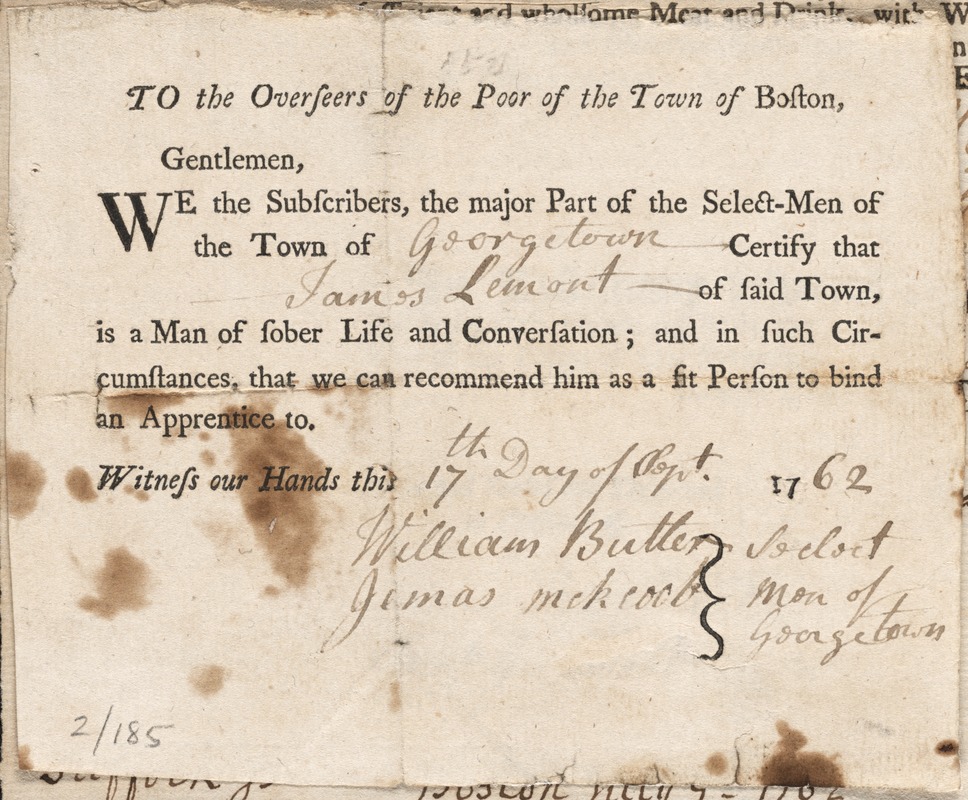 and wholſome Meat and Drink, with W
TO the Overſeers of the Poor of the Town of Boſton,
Gentlemen,
WE the Subſcribers, the major Part of the Select-Men of
the Town of Georgetown Certify that
James Lemont of ſaid Town,
is a Man of ſober Life and Converſation; and in ſuch Cir-
cumſtances, that we can recommend him as a fit Perſon to bind
an Apprentice to.
Witneſs our Hands this 17th Day of Sept. 1762
William Butler } Select
Jemas mckcobb } Men of
Georgetown
2/185
Suffolk
Boston 1762